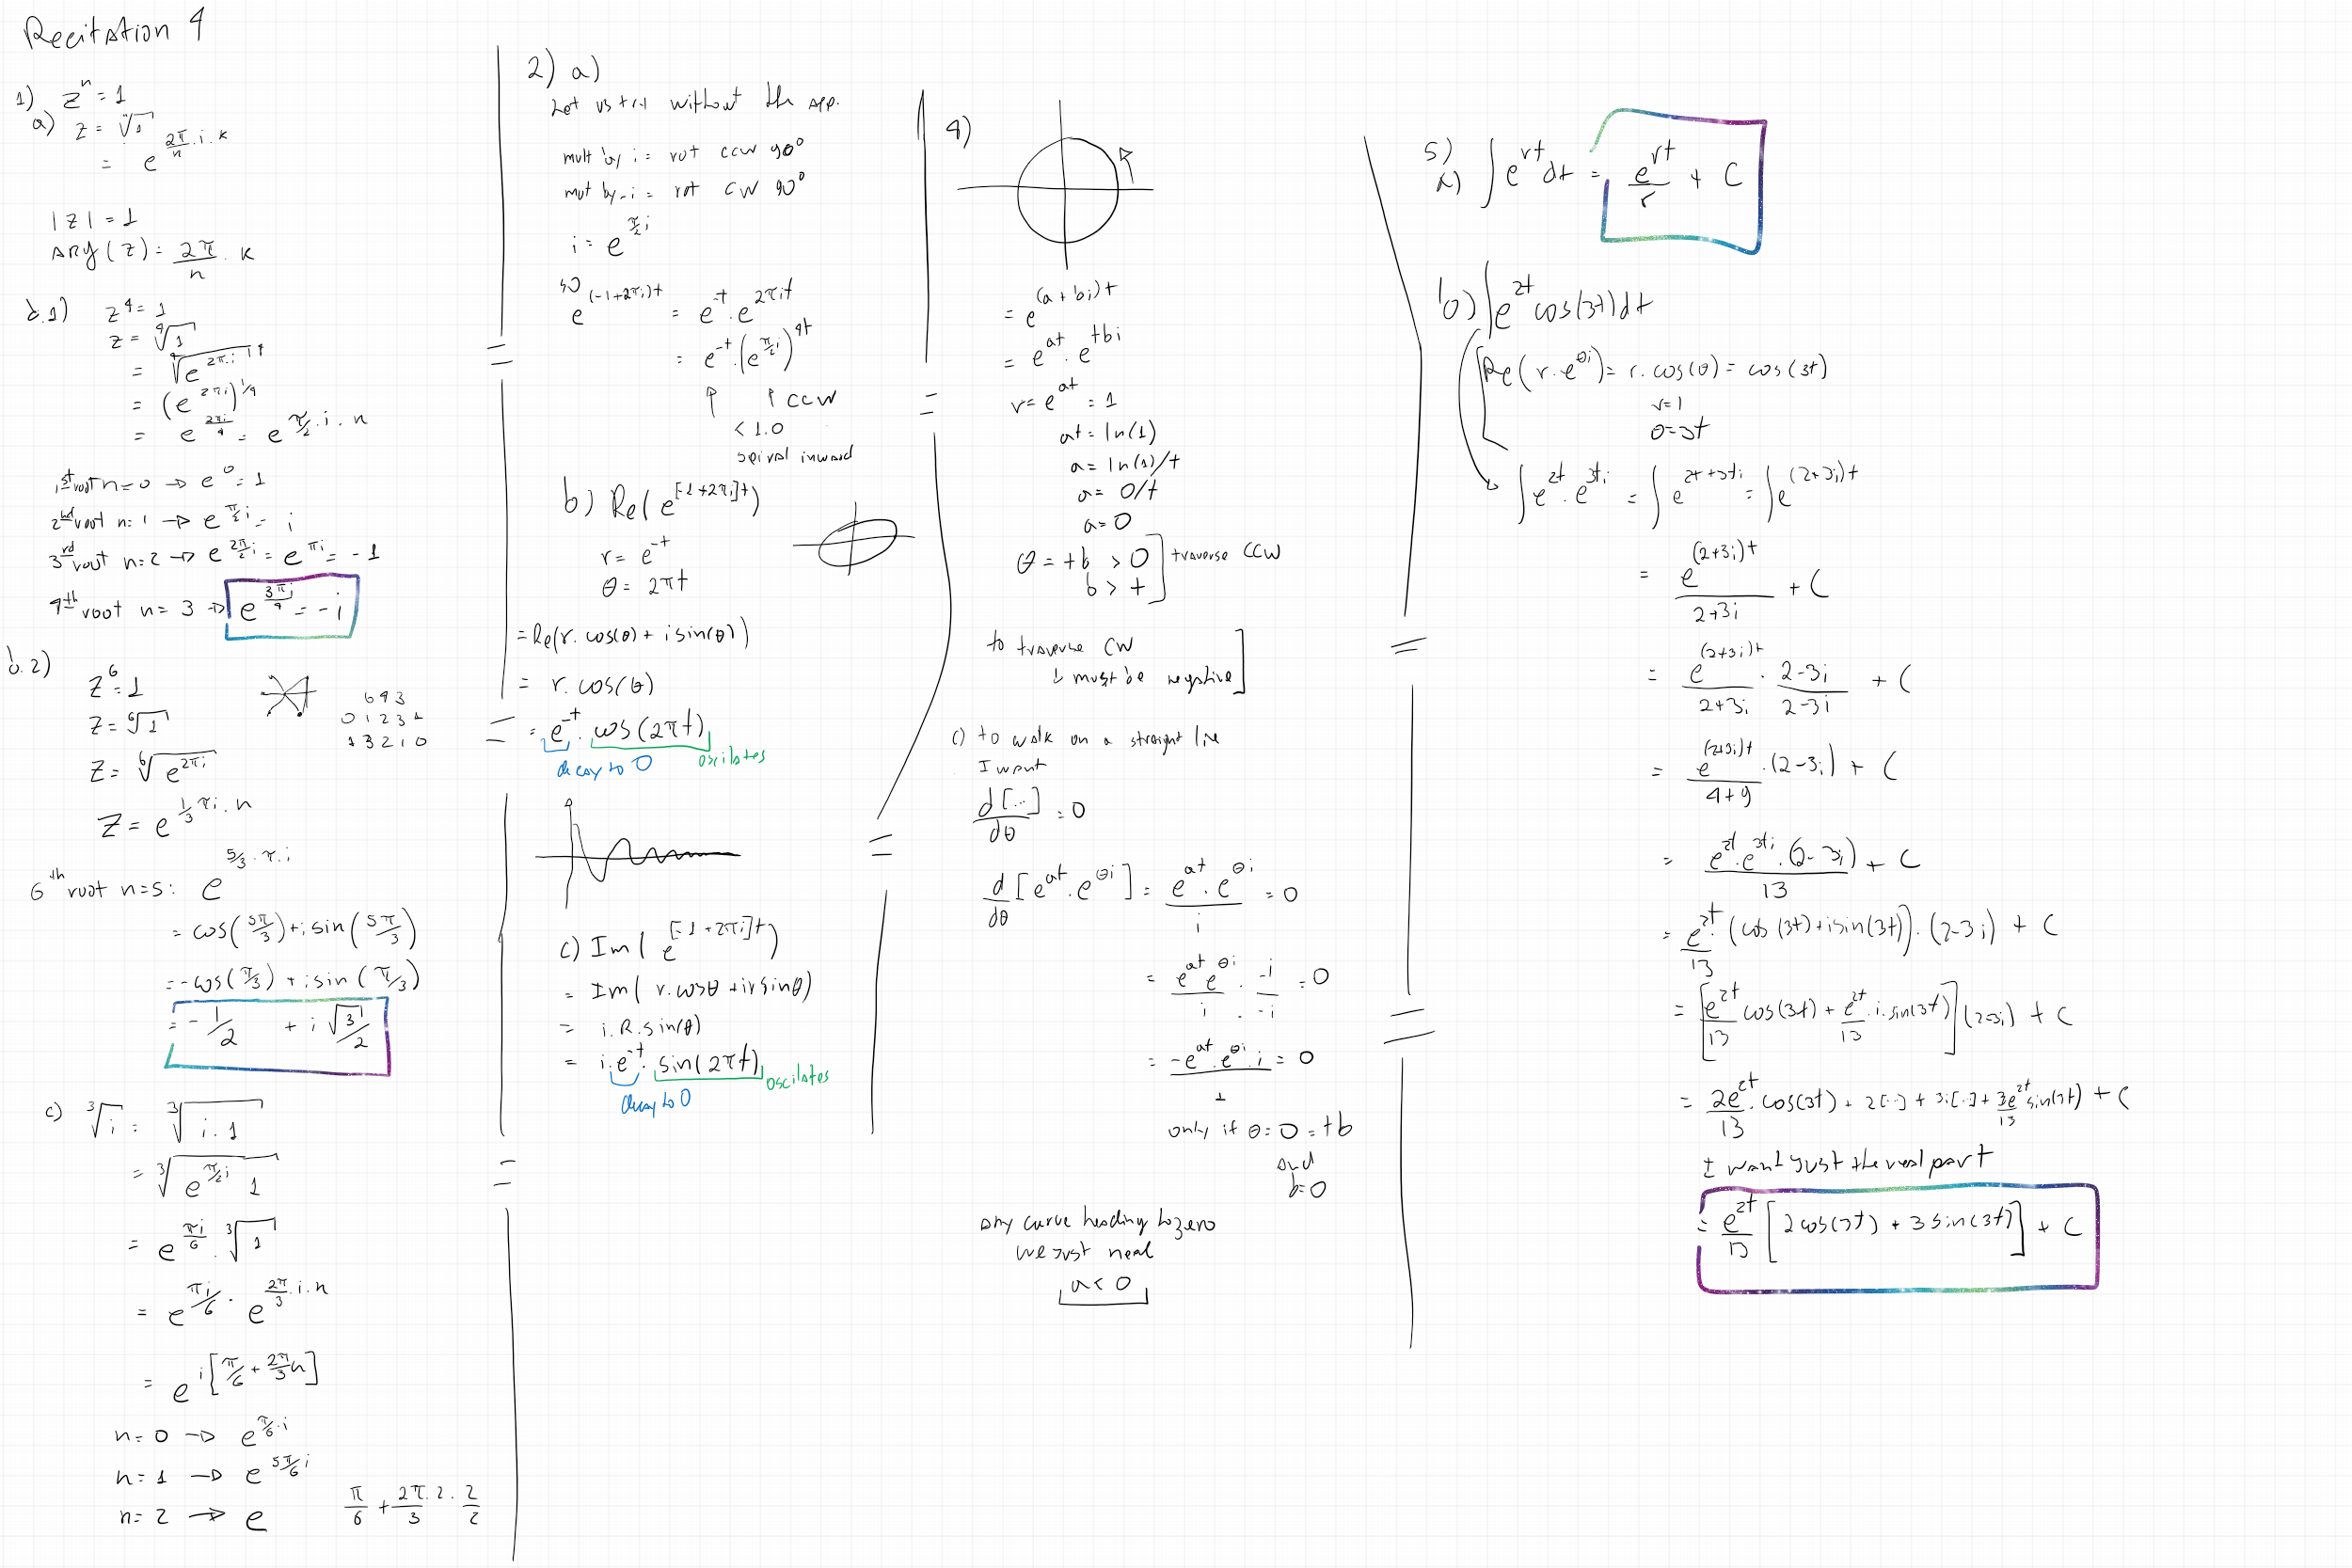 Recitation 4
1) z^n = 1
a) z = ⁿ√1
= e^(2π/n · i · k)
|z| = 1
ARg(z) = 2π/n · k
b.1) z^4 = 1
z = ⁴√1
= ⁴√e^(2π·i)
= (e^(2πi))^(1/4)
= e^(2πi/4) = e^(π/2 · i · n)
1st root n=0 → e^0 = 1
2nd root n=1 → e^(π/2 i) = i
3rd root n=2 → e^(2π/2 i) = e^(πi) = -1
4th root n=3 → e^(3πi/4) = -i
b.2)
z^6 = 1
z = ⁶√1
z = ⁶√e^(2πi)
z = e^(1/3 πi·n)
6 4 3
0 1 2 3 4
4 3 2 1 0
6th root n=5: e^(5/3·π·i)
= cos(5π/3) + i sin(5π/3)
= -cos(π/3) + i sin(π/3)
= -1/2 + i √3/2
c) ³√i = ³√(i·1)
= ³√(e^(π/2 i) 1)
= e^(πi/6) · ³√1
= e^(πi/6) · e^(2π/3 · i·n)
= e^(i[π/6 + 2π/3 n])
n=0 → e^(π/6·i)
n=1 → e^(5π/6 i)
n=2 → e π/6 + 2π·2/3 · 2/2
2) a)
Let us try without the app.
mult by i = rot ccw 90°
mut by -i = rot CW 90°
i = e^(π/2 i)
so
e^((-1+2πi)t) = e^(-t) · e^(2πit)
= e^(-t) · (e^(π/2 i))^(4t)
↑ ↑ CCW
< 1.0
spiral inward
b) Re(e^([-1+2πi]t))
r = e^(-t)
θ = 2πt
= Re(r·cos(θ) + i sin(θ))
= r·cos(θ)
= e^(-t) · cos(2πt)
oscilates
decay to 0
c) Im(e^([-1+2πi]t))
= Im(r·cosθ + i r sinθ)
= i·R·sin(θ)
= i·e^(-t) · sin(2πt)
oscilates
decay to 0
4)
= e^((a+bi)t)
= e^(at) · e^(tbi)
r = e^(at) = 1
at = ln(1)
a = ln(1)/t
a = 0/t
a = 0
θ = tb > 0
b > t
traverse CCW
to traverse CW
b must be negative
c) to walk on a straight line
I want
d[...]/dθ = 0
d/dθ [e^(at)·e^(θi)] = e^(at)·e^(θi)/i = 0
= e^(at) e^(θi)/i · -i/-i = 0
= -e^(at)·e^(θi)·i/1 = 0
only if θ = 0 = tb
and
b=0
Any curve heading to zero
we just need
a < 0
5)
a) ∫e^(rt) dt = e^(rt)/r + C
b) ∫e^(2t) cos(3t) dt
Re(r·e^(θi)) = r·cos(θ) = cos(3t)
r=1
θ=3t
∫e^(2t)·e^(3ti) = ∫e^(2t+3ti) = ∫e^((2+3i)t)
= e^((2+3i)t)/(2+3i) + C
= e^((2+3i)t)/(2+3i) · (2-3i)/(2-3i) + C
= e^((2+3i)t)/(4+9) · (2-3i) + C
= e^(2t)·e^(3ti)·(2-3i)/13 + C
= e^(2t)/13 · (cos(3t) + i sin(3t)) · (2-3i) + C
= [e^(2t)/13 cos(3t) + e^(2t)/13 · i·sin(3t)] (2-3i) + C
= 2e^(2t)/13 · cos(3t) + 2[..] + 3i[..] + 3e^(2t)/13 sin(3t) + C
I want just the real part
= e^(2t)/13 [2cos(3t) + 3sin(3t)] + C